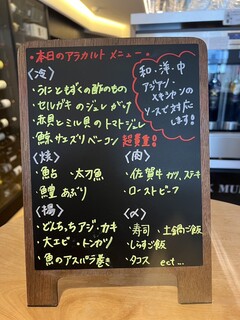 ・本日のアラカルト メニュー・
〈冷〉
・うにともずくの酢のもの
・セルガキのジュレがけ
・赤貝とミル貝のトマトジュレ
・鯨サエズリベーコン 超貴重!!
和・洋・中
アジアン・
メキシカンの
ソースで対応
します!
〈焼〉
・鮎 ・太刀魚
・鱧あぶり
〈肉〉
・佐賀牛カツ、ステーキ
・ローストビーフ
〈揚〉
・どんちっちアジ・カキ
・大エビ・トンカツ
・魚のアスパラ巻き
〈〆〉
・寿司 ・土鍋ご飯
・しらすご飯
・タコス ect...